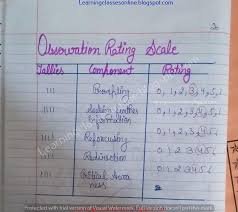 Learningclassesonline.blogspot.com
Observation Rating Scale
Tallies Component Rating
|||| Prompting 0, 1, 2, 3, 4, 5, 6
|||| Seeking further Information 0, 1, 2, 3, 4, 5, 6
|||| Refocusing 0, 1, 2, 3, 4, 5, 6
|||| Redirection 0 1 2 3 4 5 6
|||| Critical Awareness
Protected with trial version of Visual Watermark. Full version doesn't put this mark.